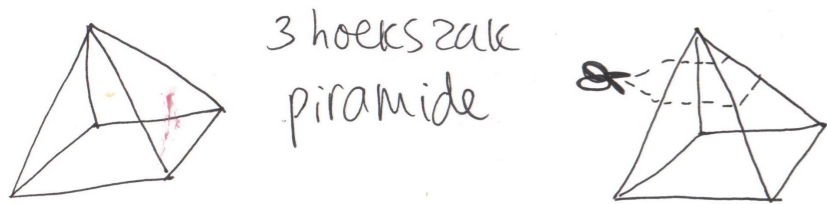 3 hoekszak
piramide